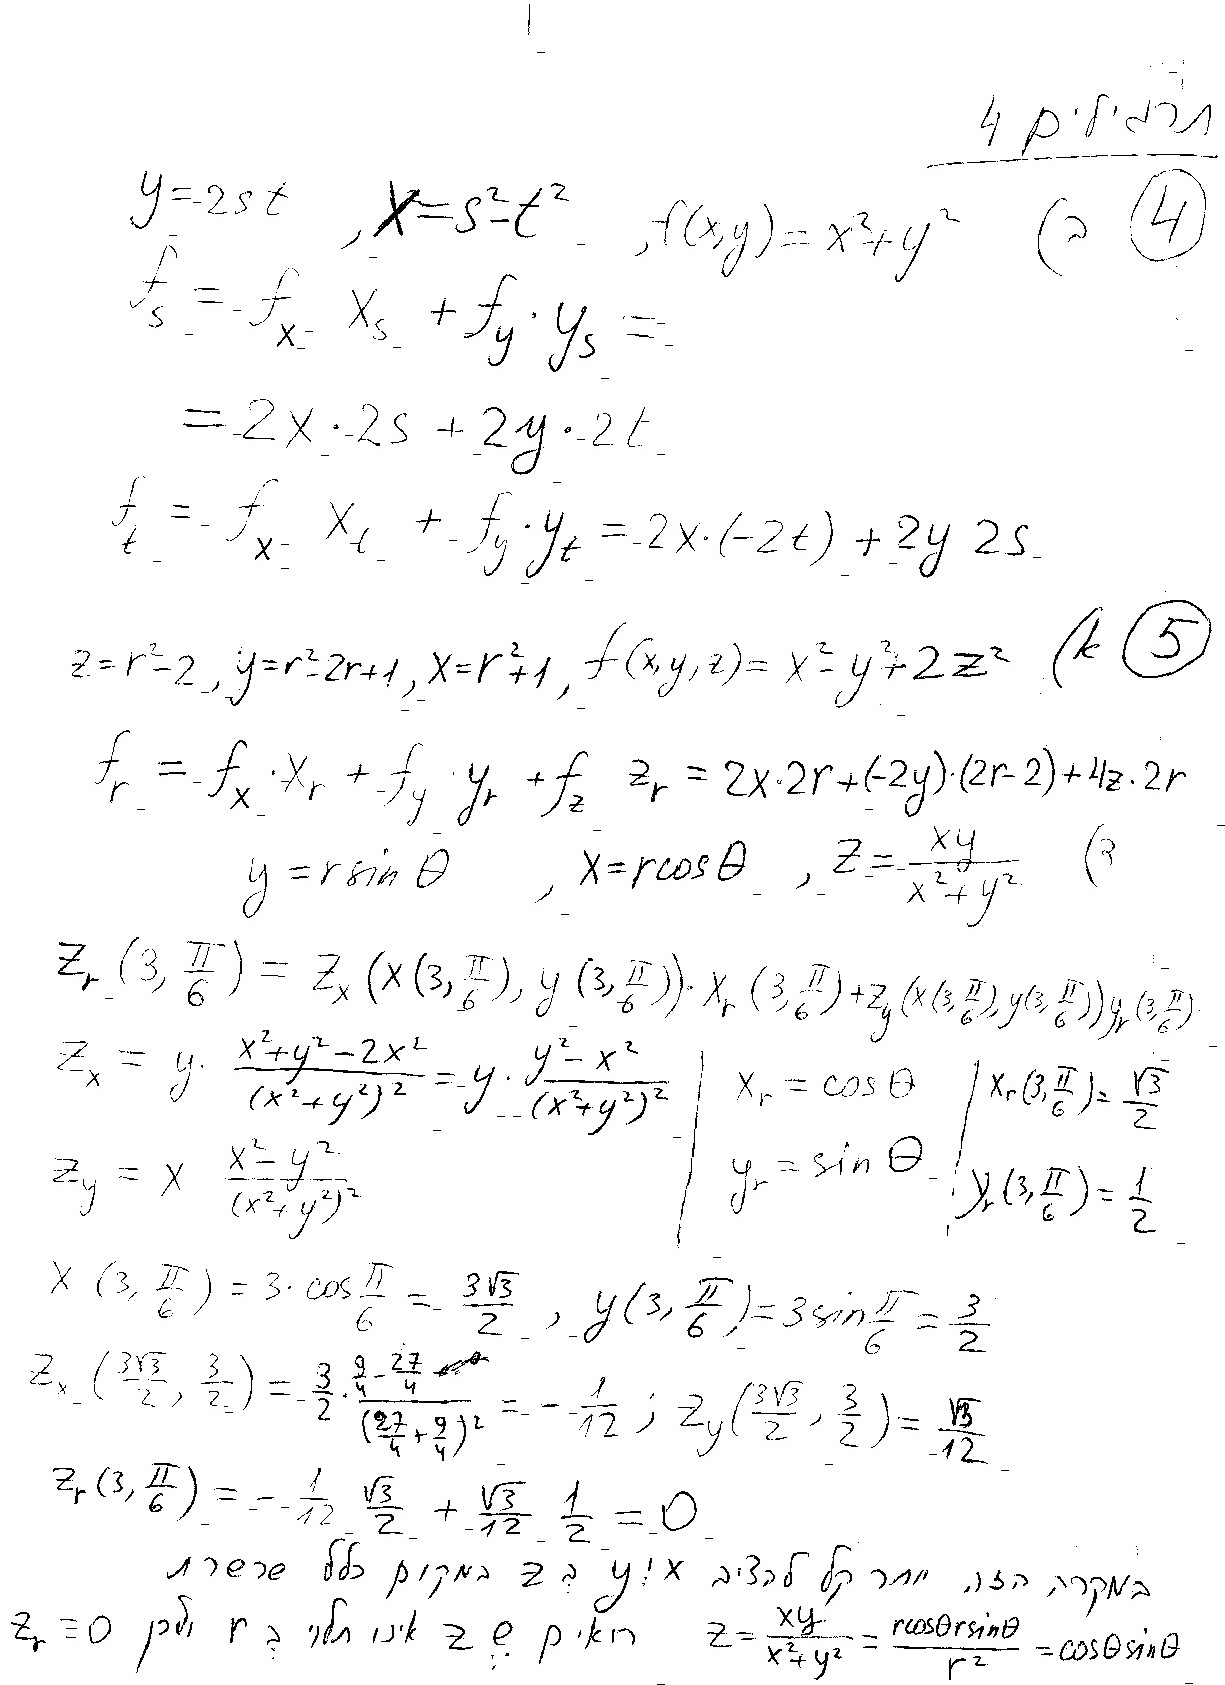 תרגילים 4
④ ב) f(x,y) = x²+y², x = s²-t², y = 2st
f_s = f_x x_s + f_y · y_s =
= 2x · 2s + 2y · 2t
f_t = f_x x_t + f_y · y_t = 2x · (-2t) + 2y 2s
⑤ א) f(x,y,z) = x²-y²+2z², x = r²+1, y = r²-2r+1, z = r²-2
f_r = f_x · x_r + f_y · y_r + f_z z_r = 2x·2r + (-2y)·(2r-2) + 4z·2r
ג) z = xy/(x²+y²), x = r cos θ, y = r sin θ
z_r(3, π/6) = z_x(x(3, π/6), y(3, π/6)) · x_r(3, π/6) + z_y(x(3, π/6), y(3, π/6)) y_r(3, π/6)
z_x = y · (x²+y²-2x²)/(x²+y²)² = y · (y²-x²)/(x²+y²)² | x_r = cos θ | x_r(3, π/6) = √3/2
z_y = x (x²-y²)/(x²+y²)² | y_r = sin θ | y_r(3, π/6) = 1/2
x(3, π/6) = 3·cos π/6 = 3√3/2, y(3, π/6) = 3 sin π/6 = 3/2
z_x(3√3/2, 3/2) = 3/2 · (9/4 - 27/4)/(27/4 + 9/4)² = -1/12; z_y(3√3/2, 3/2) = √3/12
z_r(3, π/6) = -1/12 √3/2 + √3/12 1/2 = 0
במקרה הזה, יותר קל להציב x ו y ב z במקום כלל שרשרת
z = xy/(x²+y²) = r cosθ r sinθ/r² = cosθ sinθ רואים ש z אינו תלוי ב r ולכן z_r ≡ 0